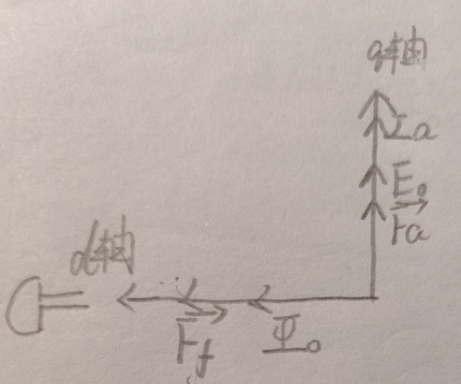 q轴
Ia
E₀
Fa
d轴
Ff
Φ₀